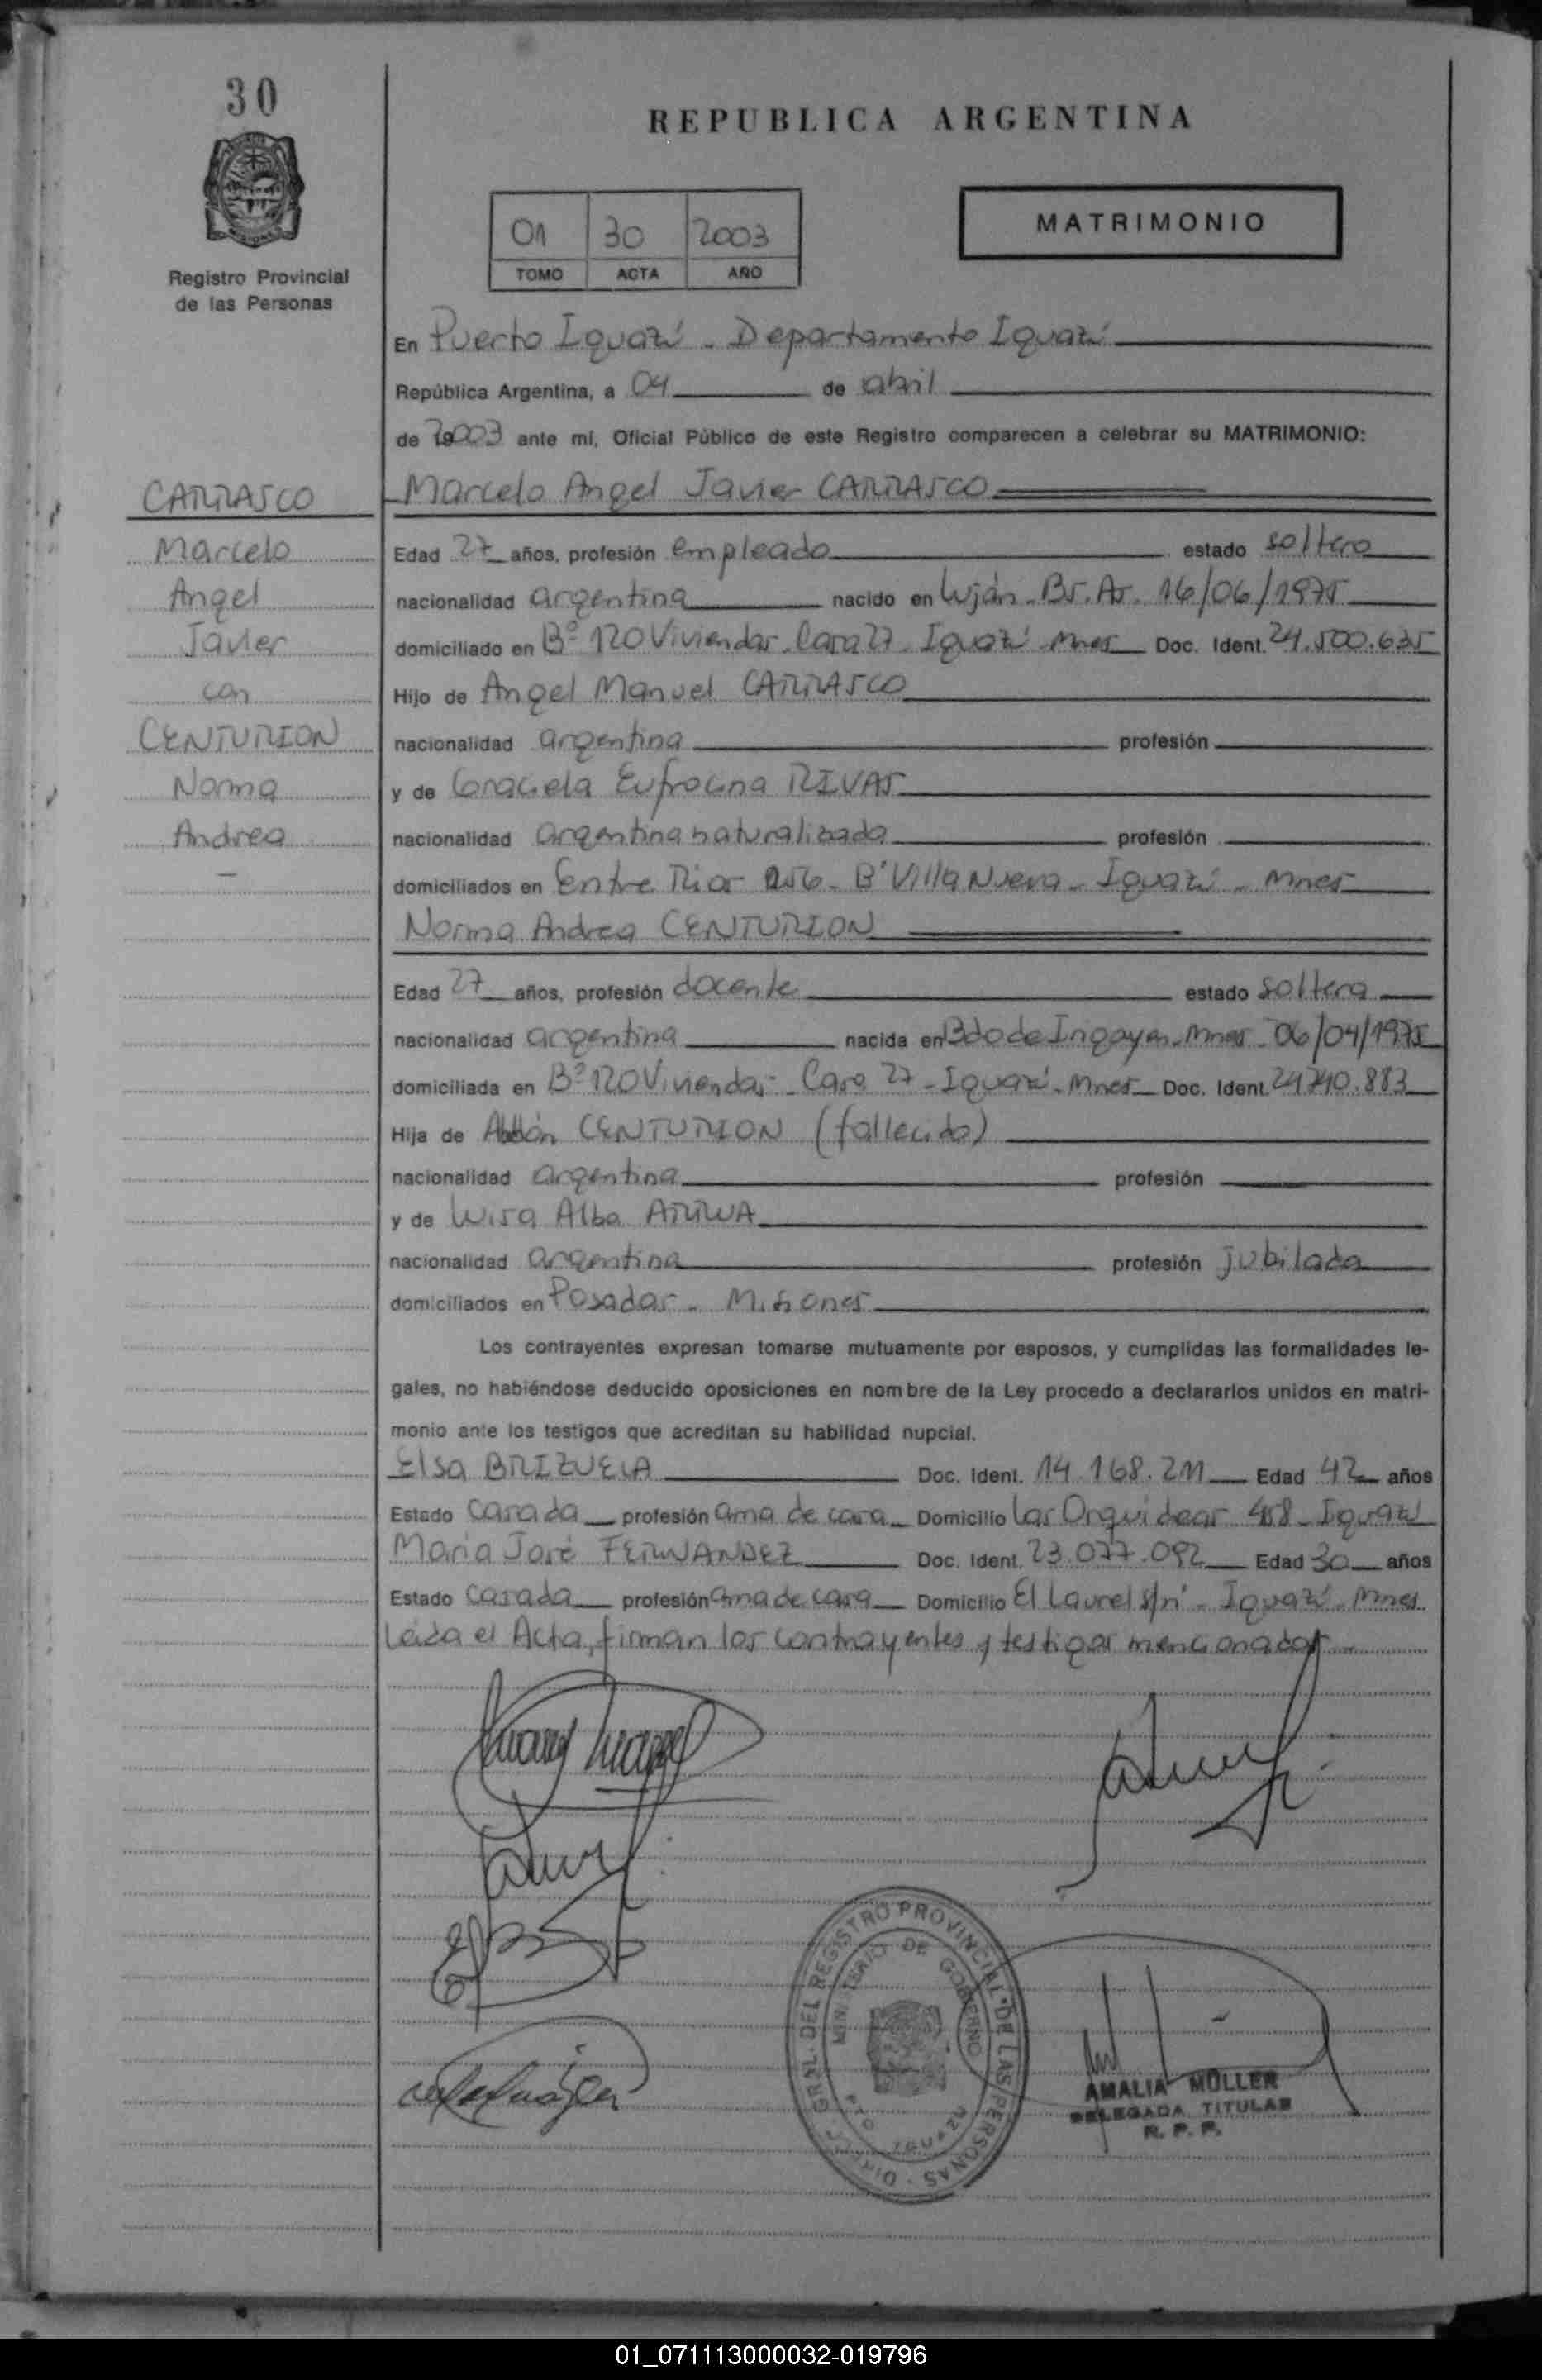 30
REPUBLICA ARGENTINA
MATRIMONIO
01 30 2003
TOMO ACTA AÑO
Registro Provincial
de las Personas
En Puerto Iguazú - Departamento Iguazú
República Argentina, a 04 de abril
de 2003 ante mí, Oficial Público de este Registro comparecen a celebrar su MATRIMONIO:
CARRASCO
Marcelo
Angel
Javier
con
CENTURION
Norma
Andrea
Marcelo Angel Javier CARRASCO
Edad 27 años, profesión empleado estado soltero
nacionalidad argentina nacido en Luján - Bs. As. 16/06/1975
domiciliado en Bº 120 Viviendas - Casa 27 - Iguazú - Mnes Doc. Ident. 24.500.635
Hijo de Angel Manuel CARRASCO
nacionalidad argentina profesión
y de Graciela Eufrocina RIVAS
nacionalidad argentina naturalizada profesión
domiciliados en Entre Rios - Bº Villa Nueva - Iguazú - Mnes
Norma Andrea CENTURION
Edad 27 años, profesión docente estado soltera
nacionalidad argentina nacida en Bdo de Irigoyen - Mnes - 06/04/1975
domiciliada en Bº 120 Viviendas - Casa 27 - Iguazú - Mnes Doc. Ident. 24740.883
Hija de CENTURION (fallecido)
nacionalidad argentina profesión
y de Luisa Alba
nacionalidad argentina profesión jubilada
domiciliados en Posadas - Misiones
Los contrayentes expresan tomarse mutuamente por esposos, y cumplidas las formalidades le-
gales, no habiéndose deducido oposiciones en nombre de la Ley procedo a declararlos unidos en matri-
monio ante los testigos que acreditan su habilidad nupcial.
Elsa BRIZUELA Doc. Ident. 14.168.211 Edad 42 años
Estado casada profesión ama de casa Domicilio Las Orquideas 458 - Iguazú
María José FERNANDEZ Doc. Ident. 23.077.092 Edad 30 años
Estado casada profesión ama de casa Domicilio El Laurel s/nº - Iguazú - Mnes
Leída el Acta, firman los contrayentes y testigos mencionados -
DIREC. GRAL. DEL REGISTRO PROVINCIAL DE LAS PERSONAS
MINISTERIO DE GOBIERNO
PTO. IGUAZU
AMALIA MÜLLER
DELEGADA TITULAR
R. P. P.
01_071113000032-019796